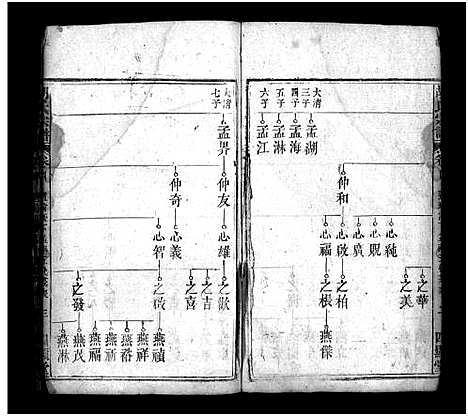 大清
三子 孟湖
四子 孟海
五子 孟淋
六子 孟江
仲和
心純
心貺
心廣
心啟
心福
之華
之美
之柏
之棖
燕傑
大清
七子 孟昇
仲友
仲奇
心雄
心義
心智
之歐
之吉
之喜
之啟
之發
燕禎
燕祥
燕裕
燕祈
燕福
燕茂
燕淋